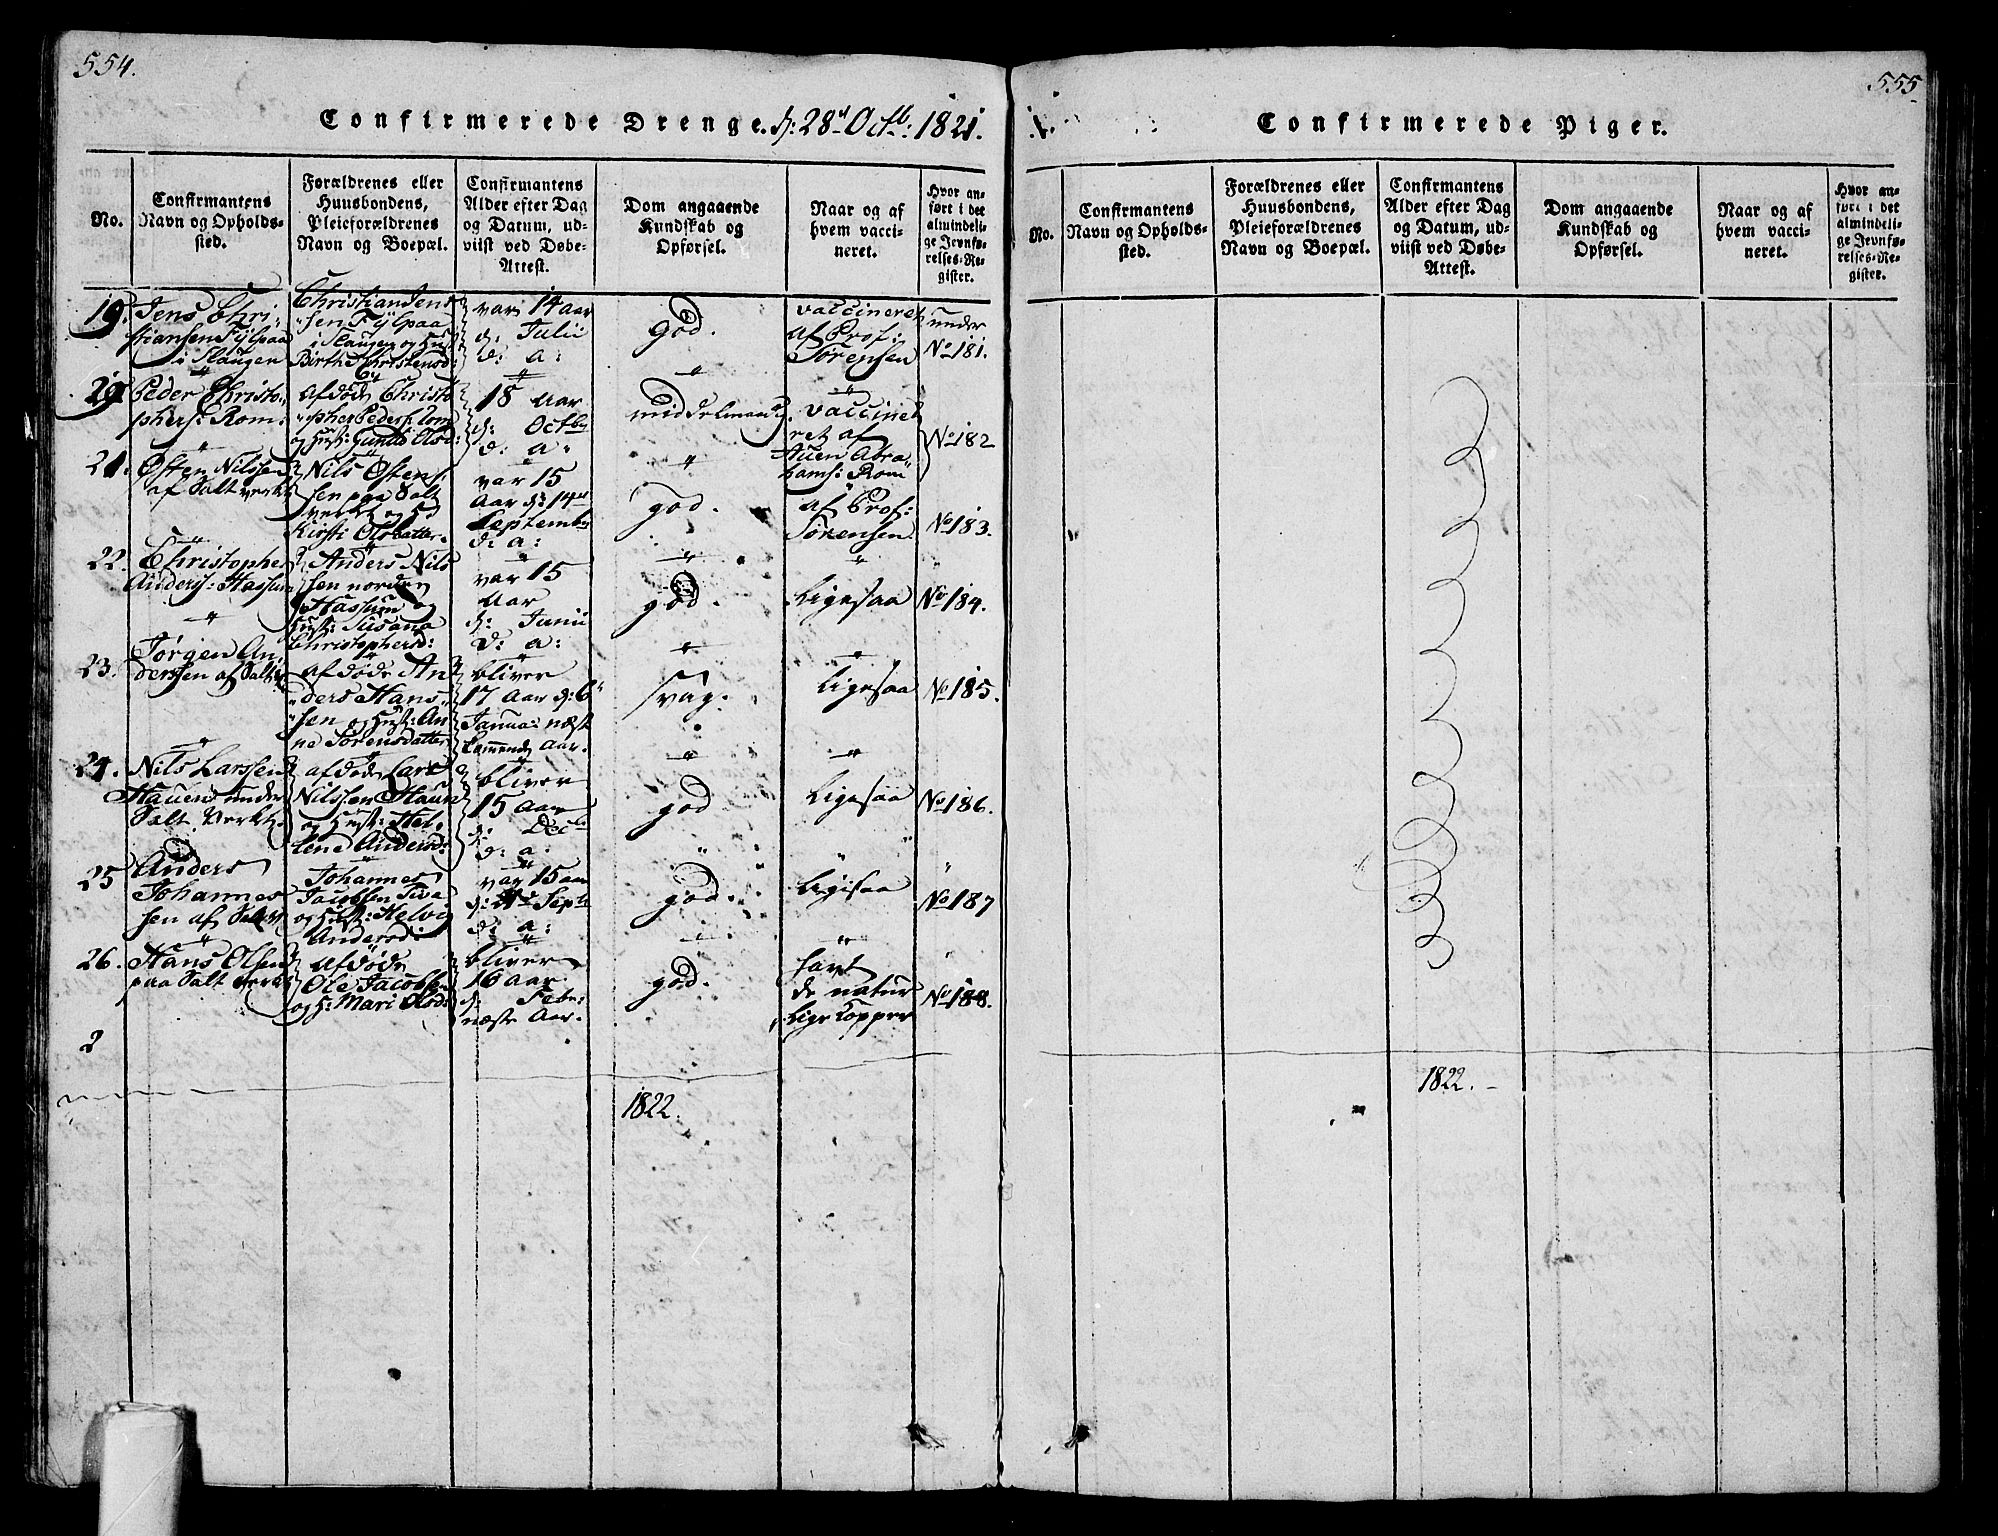 554.
Confirmerede Drenge. d: 28d Octb: 1821.
No.
Confirmantens
Navn og Opholds-
sted.
Forældrenes eller
Huusbondens,
Pleieforældrenes
Navn og Boepæl.
Confirmantens
Alder efter Dag
og Datum, ud-
viist ved Døbe-
Attest.
Dom angaaende
Kundskab og
Opførsel.
Naar og af
hvem vacci-
neret.
Hvor an-
ført i det
almindeli-
ge Jevnfø-
relses-Re-
gister.
19.
Jens Chri-
stiansen Fylpaa
i Slaugen
Christian Jens-
sen Fylpaa
i Slaugen og Hust
Birthe Christensd:
var 14 aar
d: Julii
d: a:
god.
vaccineret
af Prof:
Sørensen
under
No 181.
Peder Christo-
phers: Rom.
afdøde Christo
pher Peders: Rom
og Hust: Gunild Olsd:
18 Aar
d: Octbr
d: a:
middelmaadig
vaccine
ret af
Auen Abra
hams: Rom
No 182
21.
Østen Nilssen
af Salt verket
Nils Østens-
sen paa Salt
verket og H
Kirsti Olsdatter.
var 15
Aar d: 14de
Septembr
d: a:
god.
af Prof:
Sørensen
No 183.
22.
Christopher
Anders: Hassum
Anders Nils
sen norden
Hassum og
Hust: Susana
Christophersd:
var 15
Aar
d: Junii
d: a:
god.
Ligesaa
No 184.
23.
Jørgen An-
derssen af Saltv
afdøde An
ders Hans-
sen og Hust: An
ne Sørensdatter
bliver
17 Aar d: 6
Janua: næst
kommende Aar.
svag.
Ligesaa
No 185.
24.
Nils Larssen
Hauen under
Salt Verket
afdøde Lars
Nilssen Hauen
og Hust: Hel-
lene Andersd:
bliver
15 aar
d: Decb
d: a:
god
Ligesaa
No 186.
25
Anders
Johannes
sen af Saltv
Johannes
Jacobsen
og Hust: Helvig
Andersd:
var 15 aar
d: Septe
d: a:
god.
Ligesaa
No 187
26.
Hans Olsen
paa Salt verket
Afdøde
Ole Jacobsen
og H: Mari Olsd:
bliver
16 Aar
d: Febr:
næste Aar.
god.
havt
de natur
lige Kopper
No 188.
2
1822.
555.
Confirmerede Piger.
No.
Confirmantens
Navn og Opholds-
sted.
Forældrenes eller
Huusbondens,
Pleieforældrenes
Navn og Boepæl.
Confirmantens
Alder efter Dag
og Datum, ud-
viist ved Døbe-
Attest.
Dom angaaende
Kundskab og
Opførsel.
Naar og af
hvem vacci-
neret.
Hvor an-
ført i det
almindeli-
ge Jevnfø-
relses-Re-
gister.
1822.